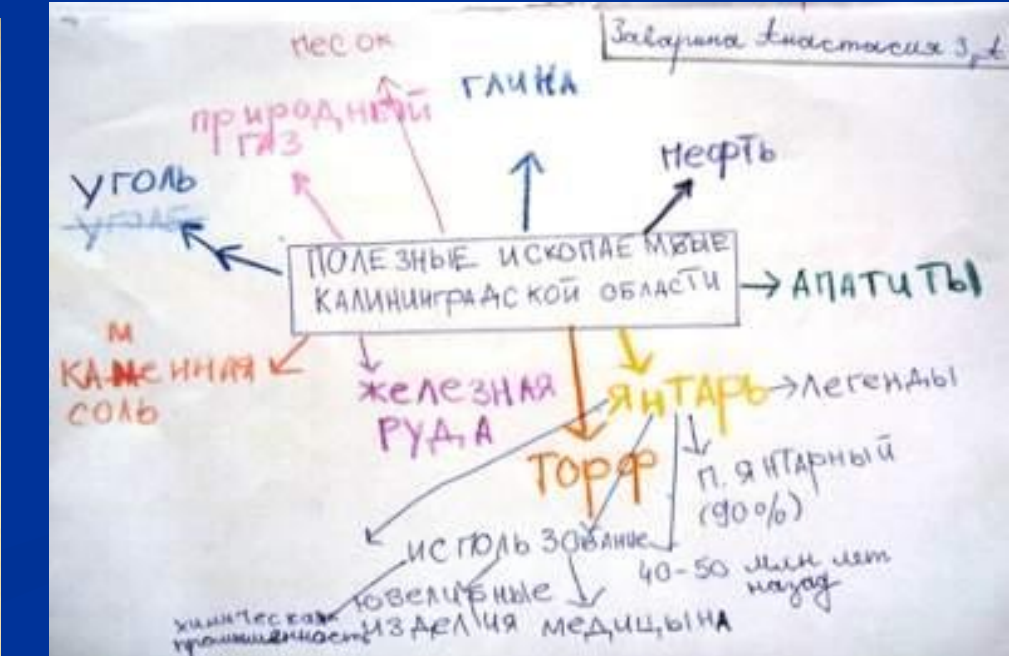 Заварина Анастасия 3 А
песок
глина
природный
газ
нефть
уголь
уголь
ПОЛЕЗНЫЕ ИСКОПАЕМЫЕ
КАЛИНИНГРАДСКОЙ ОБЛАСТИ
АПАТИТЫ
М
КАМЕННАЯ
СОЛЬ
ЖЕЛЕЗНАЯ
РУДА
ЯНТАРЬ
легенды
ТОРФ
П. ЯНТАРНЫЙ
(90%)
использование
40-50 млн лет
назад
ювелирные
изделия
медицына
химическая
промышленность